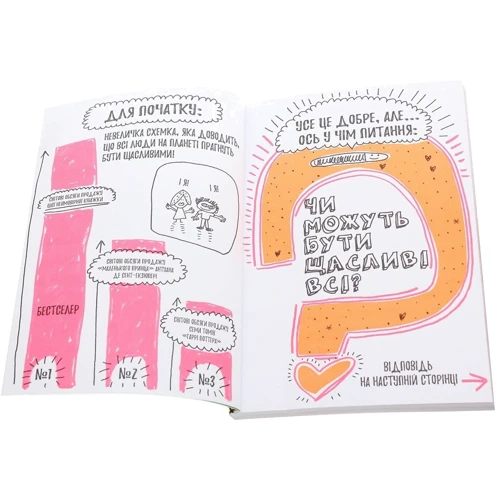 ДЛЯ ПОЧАТКУ:
НЕВЕЛИЧКА СХЕМКА, ЯКА ДОВОДИТЬ,
ЩО ВСІ ЛЮДИ НА ПЛАНЕТІ ПРАГНУТЬ
БУТИ ЩАСЛИВИМИ!
І Я!
І Я!
СВІТОВІ ОБСЯГИ ПРОДАЖУ
ЦІЄЇ НЕЙМОВІРНОЇ КНИЖКИ
СВІТОВІ ОБСЯГИ ПРОДАЖУ
«МАЛЕНЬКОГО ПРИНЦА» АНТУАНА
ДЕ СЕНТ-ЕКЗЮПЕРІ
СВІТОВІ ОБСЯГИ ПРОДАЖУ
СЕМИ ТОМІВ
«ГАРРІ ПОТТЕРА»
БЕСТСЕЛЕР
№1
№2
№3
УСЕ ЦЕ ДОБРЕ, АЛЕ...
ОСЬ У ЧІМ ПИТАННЯ:
ЧИ
МОЖУТЬ
БУТИ
ЩАСЛИВІ
ВСІ?
ВІДПОВІДЬ
НА НАСТУПНІЙ СТОРІНЦІ